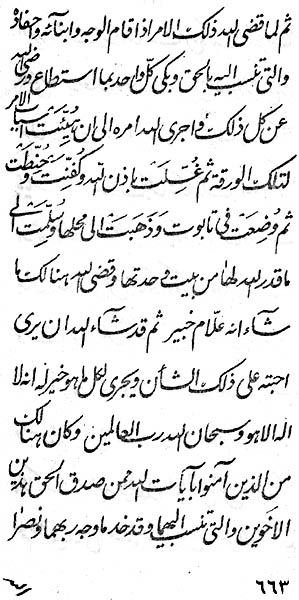 ثم لما قضى الله ذلك الامر اذ اقام الوجه وابنائه
والتي تنسب اليه بالحق وبكى كل واحد بما استطاع ورضى الله
عن كل ذلك واجرى الله امره الى ان هيئت اسباب الامر
لتلك الورقة ثم غُسِلَت باذن الله وكُفِّنَت وحُنِّطَت
ثم وُضِعَت في تابوت وذَهَبَت الى محلها وسُلِّمَت الى
ما قدر الله لها من بيت وحدتها وقضى الله هنالك ما
شاء انه علّام خبير ثم قد شاء الله ان يرى
احبته على ذلك الشأن ويجرى لكل ما هو خير له انه لا
اله الا هو وسبحان الله رب العالمين وكان هنالك
من الذين آمنوا بآيات الله من صدق الحق هذين
الاخوين والتي تنسب اليهما وقد خدما وجد بهما ونصرا
٦٦٣